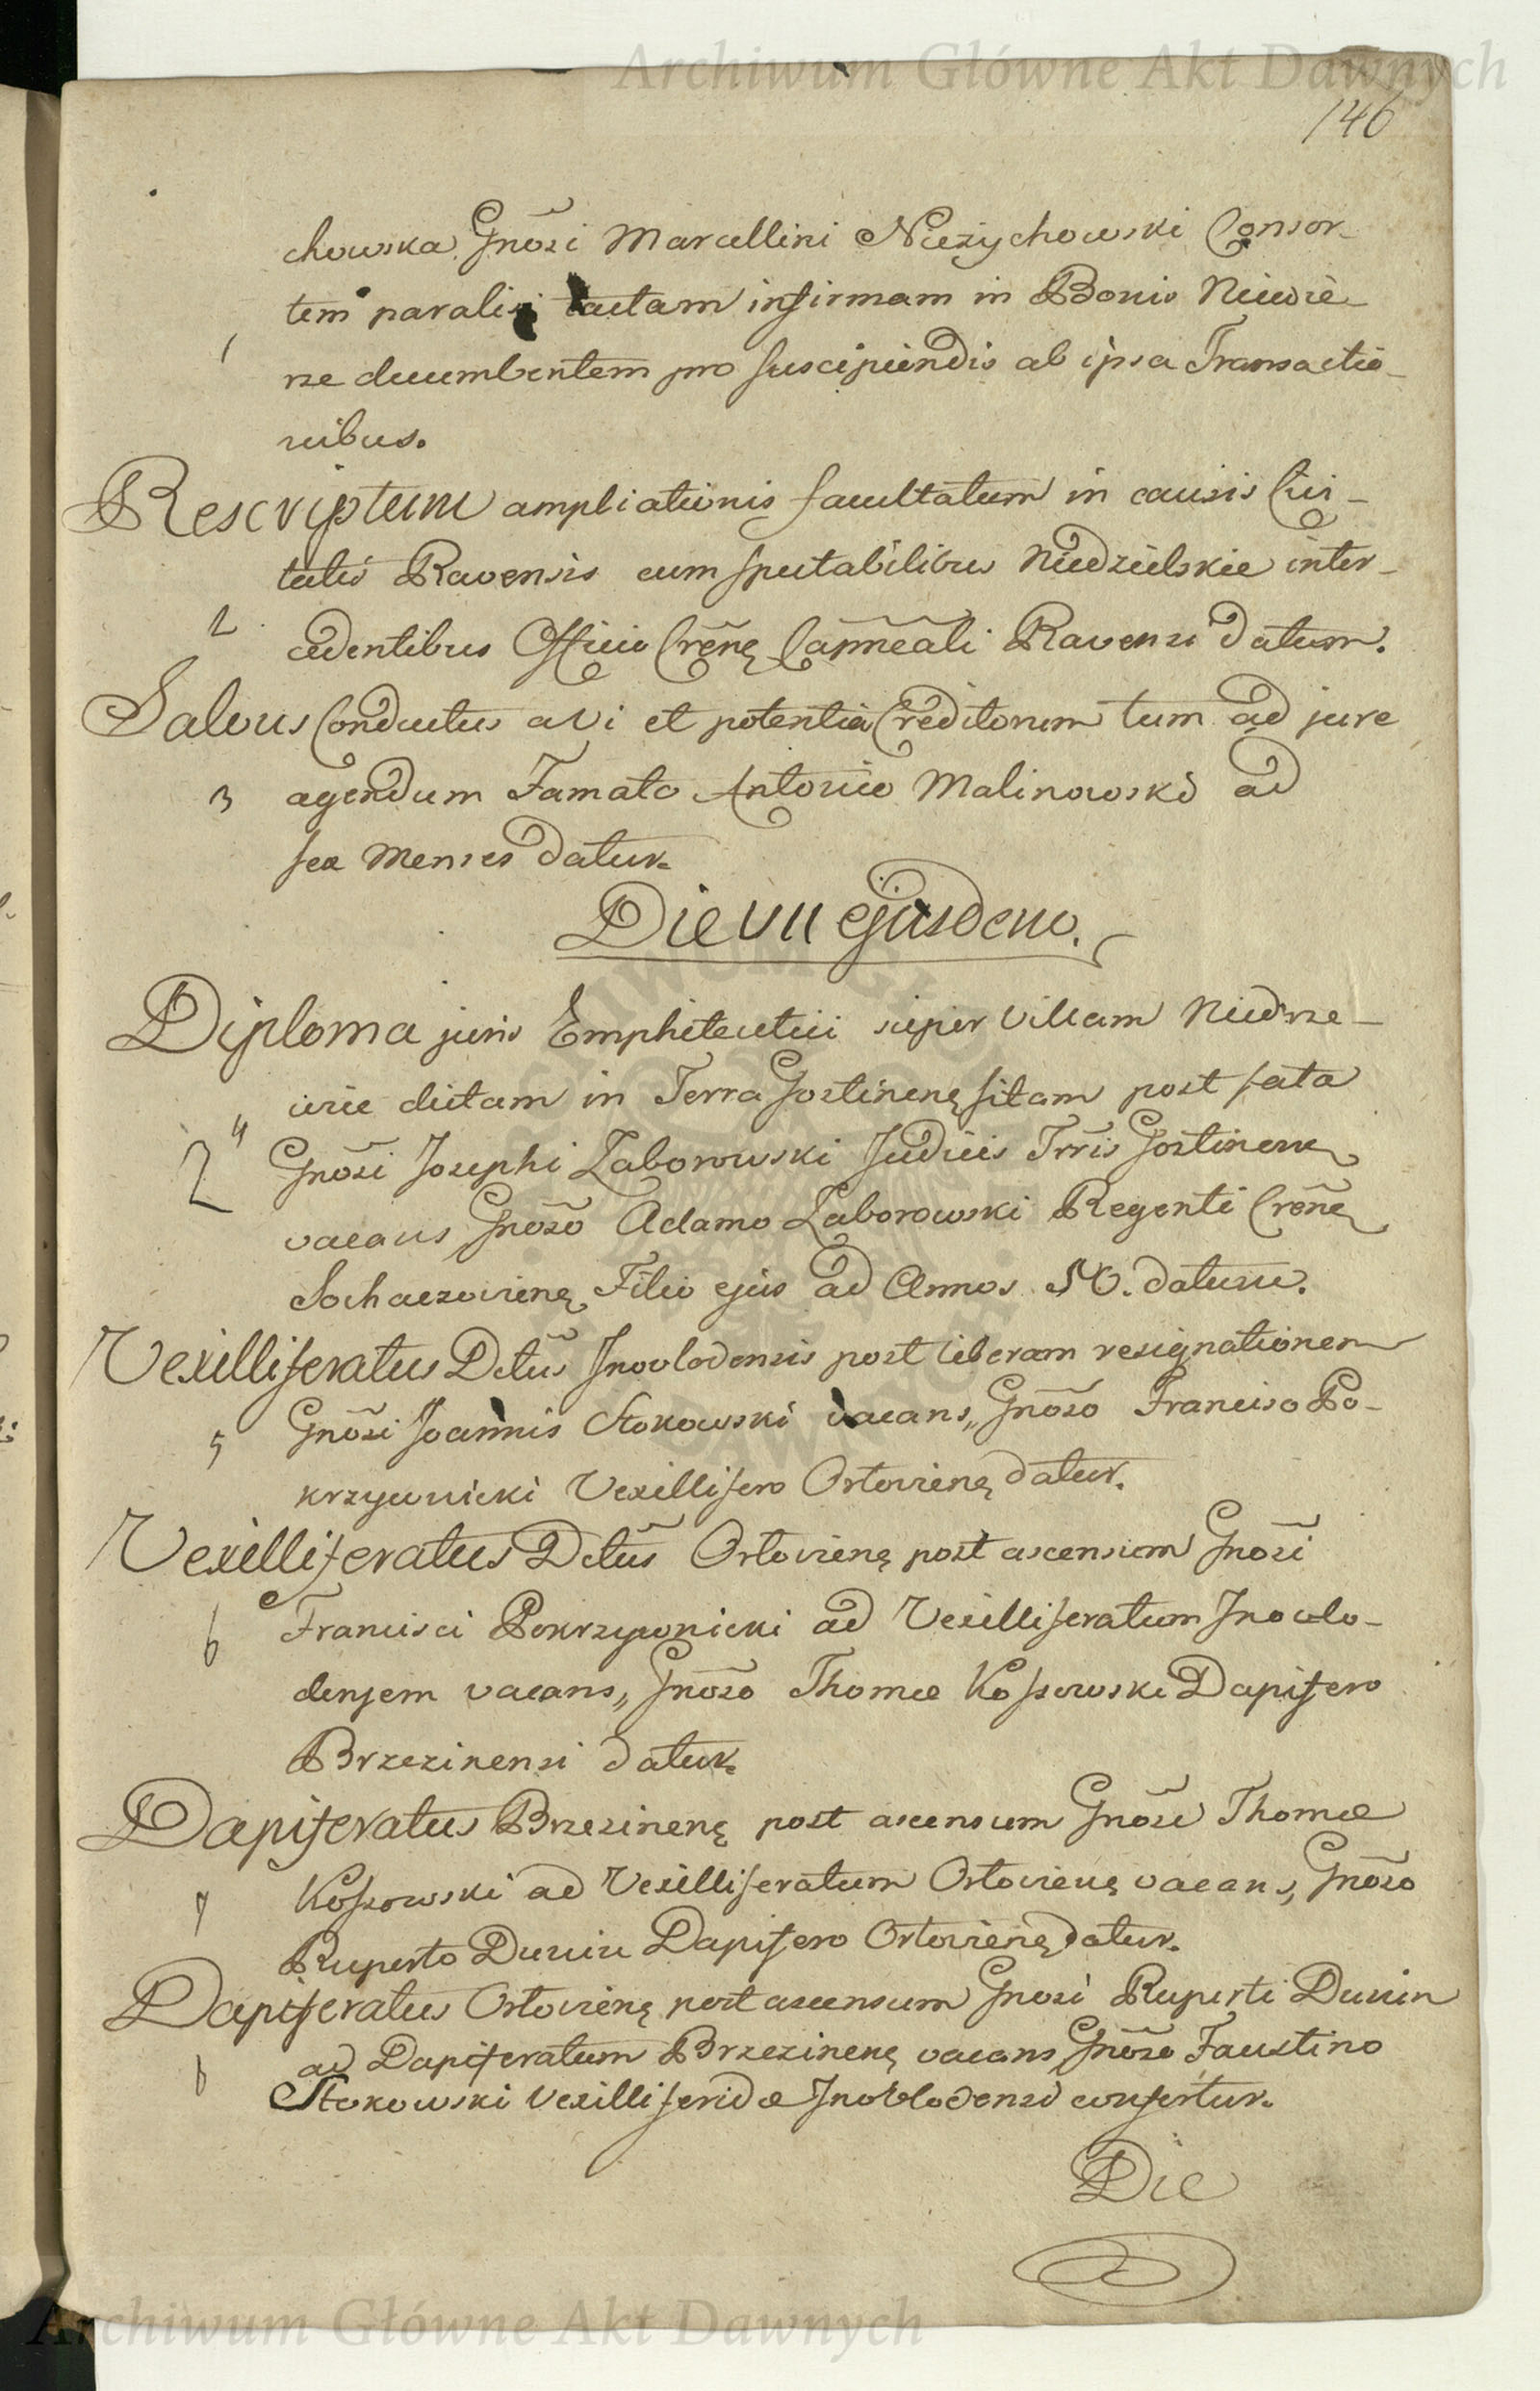 Archiwum Główne Akt Dawnych
146
chowska Gnosi Marcellini Nieżychowski Consor-
tem paralisi tactam infirmam in Bonis Niewie-
1
rze decumbentem pro suscipiendis ab ipsa Transactio-
nibus.
Rescriptum ampliationis facultatum in causis Civi-
tatis Ravensis cum spectabilibus Niedzielskie inter-
2 cedentibus Officio Crēnę Capīnēali Ravensi datum.
Salvus Conductus a vi et potentia Creditorum tum ad jure
3 agendum Famato Antonio Malinowski ad
sex Menses datur.
Die VII ejusdem.
Diploma juris Emphiteutici super Villam Niedrze-
wie dictam in Terra Gostinenę sitam post fata
4
2 Gnōsi Josephi Zaborowski Judicis Trrīs Gostinenę
vacans Gnōso Adamo Zaborowski Regenti Crēnę
Sochaczovienę Filio ejus ad Annos 50. datum.
Vexilliferatus Dctūs Inovlodensis post liberam resignationem
5 Gnōsi Joannis Stokowski vacans,, Gnōso Francisco Po-
krzywnicki Vexillifero Orlovienę datur.
Vexilliferatus Dctūs Orlovienę post ascensum Gnōsi
6 Francisci Pokrzywnicki ad Vexilliferatum Inovlo-
densem vacans,, Gnōso Thomæ Kossowski Dapifero
Brzezinensi datur.
Dapiferatus Brzezinenę post ascensum Gnōsi Thomæ
7 Kossowski ad Vexilliferatum Orlovienę vacans, Gnōso
Ruperto Dunin Dapifero Orlovienę datur.
Dapiferatus Orlovienę post ascensum Gnosi Ruperti Dunin
8 ad Dapiferatum Brzezinenę vacans Gnōso Faustino
Stokowski Vexilliferidæ Inovlodensi confertur.
Die
Archiwum Główne Akt Dawnych